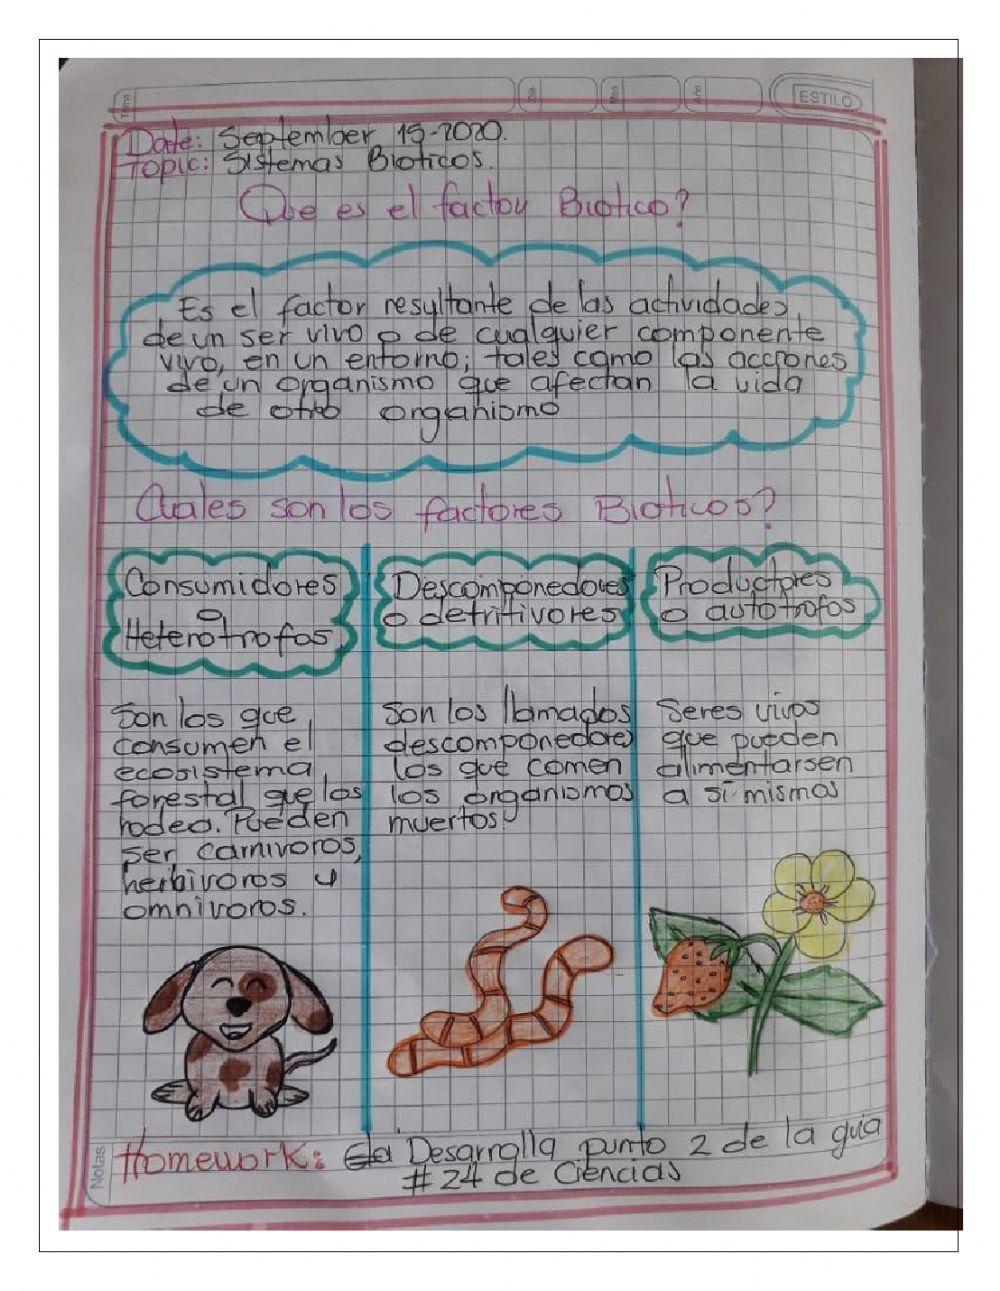 Tema
Día
Mes
Año
ESTILO
Date: September 15-2020.
Topic: Sistemas Bioticos.
Que es el factor Biotico?
Es el factor resultante de las actividades
de un ser vivo o de cualquier componente
vivo, en un entorno; tales como las acciones
de un organismo que afectan la vida
de otro organismo
Cuales son los factores Bioticos?
Consumidores
o
Heterotrofos
Son los que
consumen el
ecosistema
forestal que los
rodea. Pueden
ser carnivoros,
herbivoros y
omnivoros.
Descomponedores
o detritivores
Son los llamados
descomponedores
los que comen
los organismos
muertos.
Productores
o autotrofos
Seres vivos
que pueden
alimentarsen
a si mismos
Notas
Homework: Desarrolla punto 2 de la guia
# 24 de Ciencias